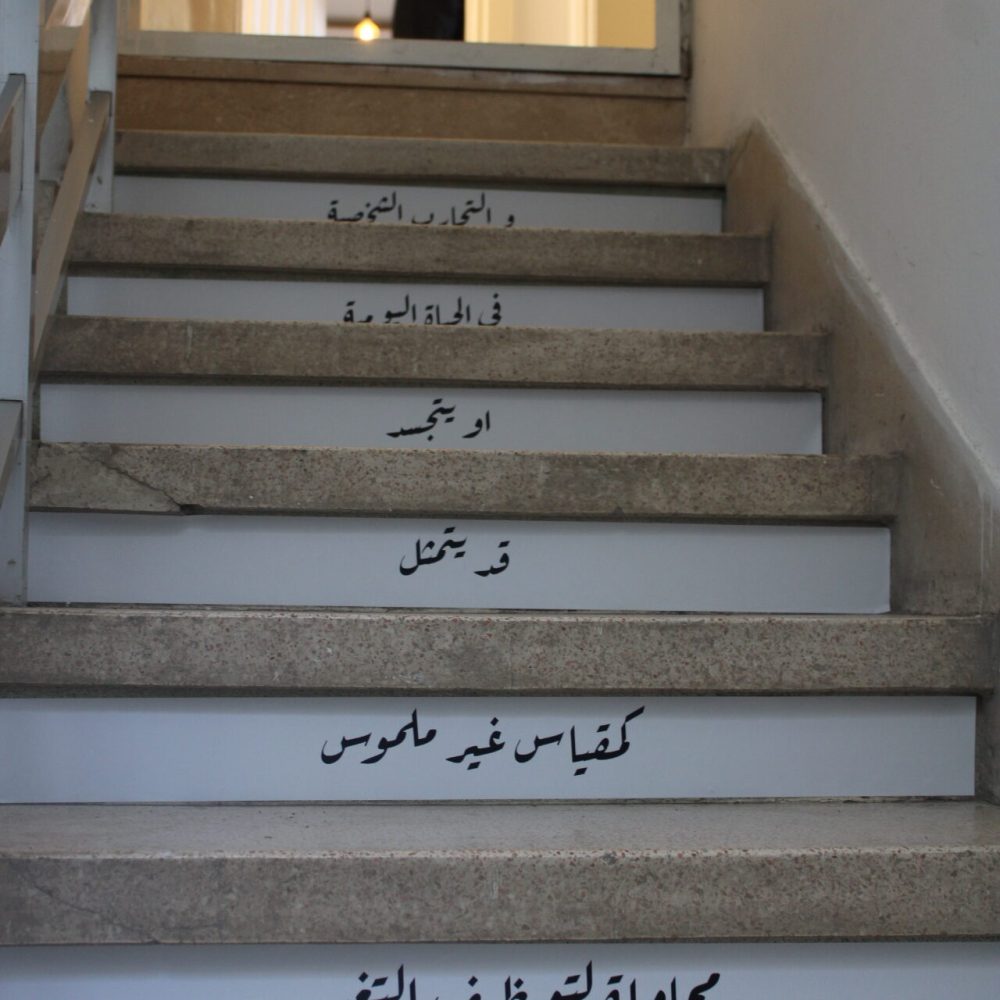 و التجارب الشخصية
في الحياة اليومية
او يتجسد
قد يتمثل
كمقياس غير ملموس
محاولة لتوظيف